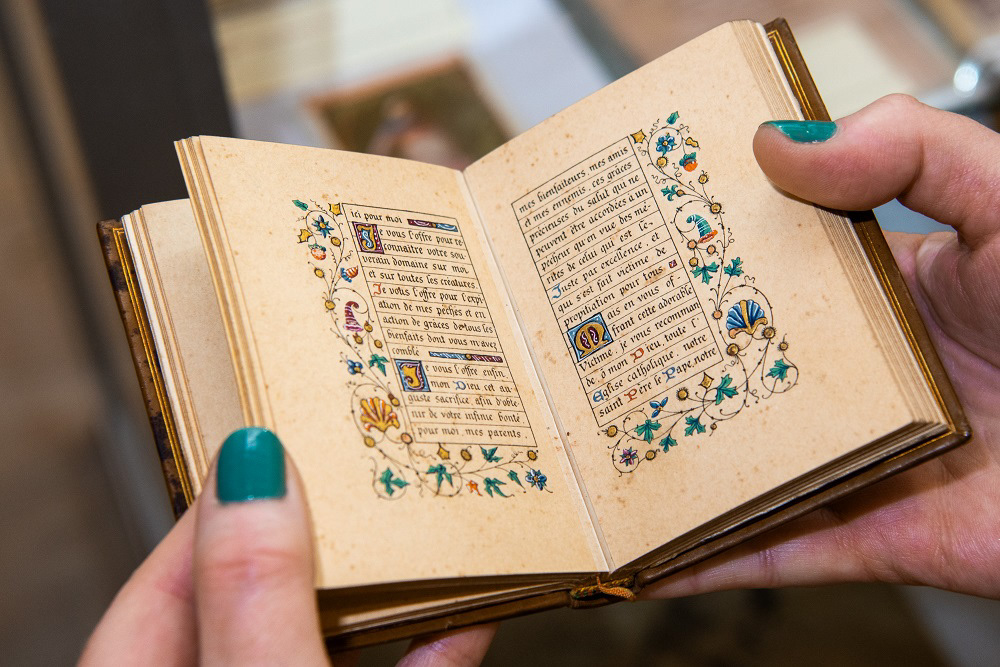 ici pour moi
Je vous l'offre pour re
connaitre votre sou
verain domaine sur moi,
et sur toutes les créatures.
Je vous l'offre pour l'expi
ation de mes péchés et en
action de grâces de tous les
bienfaits dont vous m'avez
comblé
Je vous l'offre enfin,
mon Dieu cet au-
guste sacrifice, afin d'obte
nir de votre infinie bonté
pour moi, mes parents,
mes bienfaiteurs, mes amis
et mes ennemis, ces grâces
précieuses du salut qui ne
peuvent être accordées a un
pécheur qu'en vue des mé-
rites de celui qui est le
Juste par excellence, et
qui s'est fait victime de
propitiation pour tous.
Mais en vous of
frant cette adorable
Victime, je vous recomman
de, ô mon Dieu, toute l'
Eglise catholique, notre
saint Père le Pape, notre